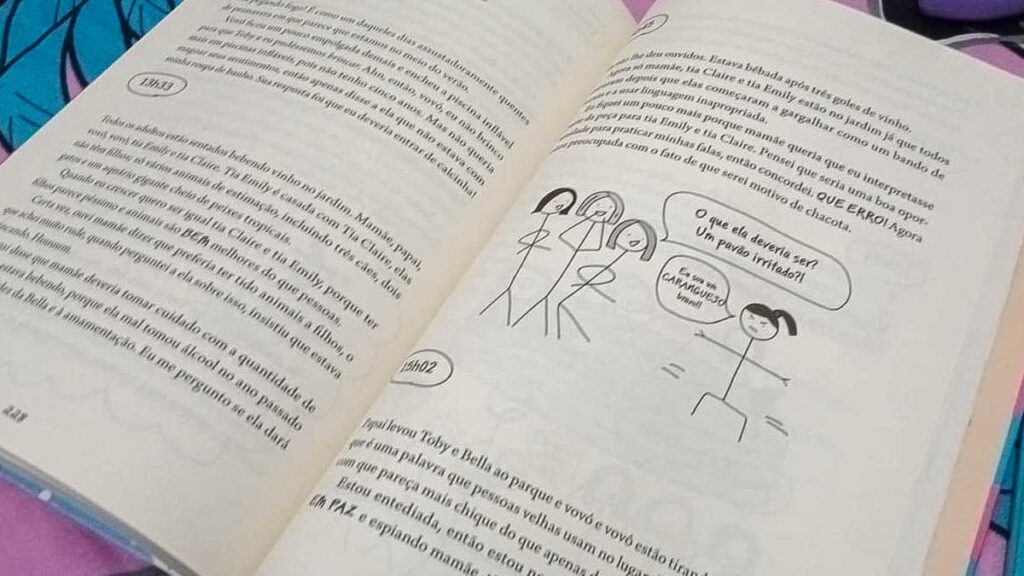 pegando fogo! É como um daqueles dias assustadoramente quentes
de primavera em que parece que estamos no meio do verão.
Vovó ficou um pouco empolgada demais e encheu a piscina inflável
para que Toby e eu pudéssemos brincar. Ahn, então, vovó, eu não brinco
mais em piscinas infláveis, pois não tenho cinco anos. Mas não queria
magoar seus sentimentos, então apenas disse a ela que não estava com
minha roupa de banho. Sua resposta foi que eu deveria entrar de calcinha!
13h33
Todos os adultos estão sentados bebendo vinho no jardim. Mamãe, papai,
vovô, vovó, tia Emily e tia Claire. Tia Emily é casada com Tia Claire, elas
não têm filhos, só vários animais de estimação, incluindo três cães, dois
gatos e um aquário gigante cheio de peixes tropicais.
Quando eu crescer quero ser igual tia Claire e tia Emily, porque ter
filhos parece péssimo e animais são BEM melhores do que pessoas.
Certa vez, ouvi mamãe dizer que preferia ter tido animais a filhos, o
que achei muito rude, quando perguntei a ela sobre isso, insistiu que estava
brincando. Hummm.
disse que mamãe deveria tomar cuidado com a quantidade de
estava bebendo, porque ela mal tomou álcool no ano passado
da Bella e à amamentação. Eu me pergunto se ela dará
228
lhe deu ouvidos. Estava bêbada após três goles de vinho.
Agora só mamãe, tia Claire e tia Emily estão no jardim já que todos
depois que elas começaram a gargalhar como um bando de
e usar linguagem inapropriada.
fiquei um pouco mais porque mamãe queria que eu interpretasse
peça para tia Emily e tia Claire. Pensei que seria uma boa opor-
para praticar minhas falas, então concordei. QUE ERRO! Agora
preocupada com o fato de que serei motivo de chacota.
O que ela deveria ser?
Um pavão irritado?!
Eu sou um
CARANGUEJO
15h02
Papai levou Toby e Bella ao parque e vovó e vovô estão tirand
que é uma palavra que pessoas velhas usam no lugar
com que pareça mais chique do que apenas d
Estou entediada, então estou n
EM PAZ e espiando mamãe,